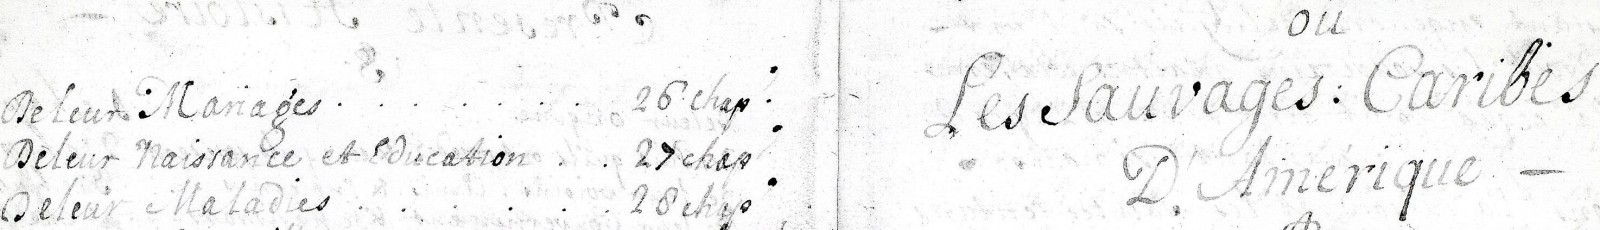 De leur Mariages . . . . . . . . 26 chap.
De leur Naissance et Education . . 27 chap
De leur Maladies . . . . . . . 28 chap
ou
Les Sauvages: Caribes
D'Amerique —